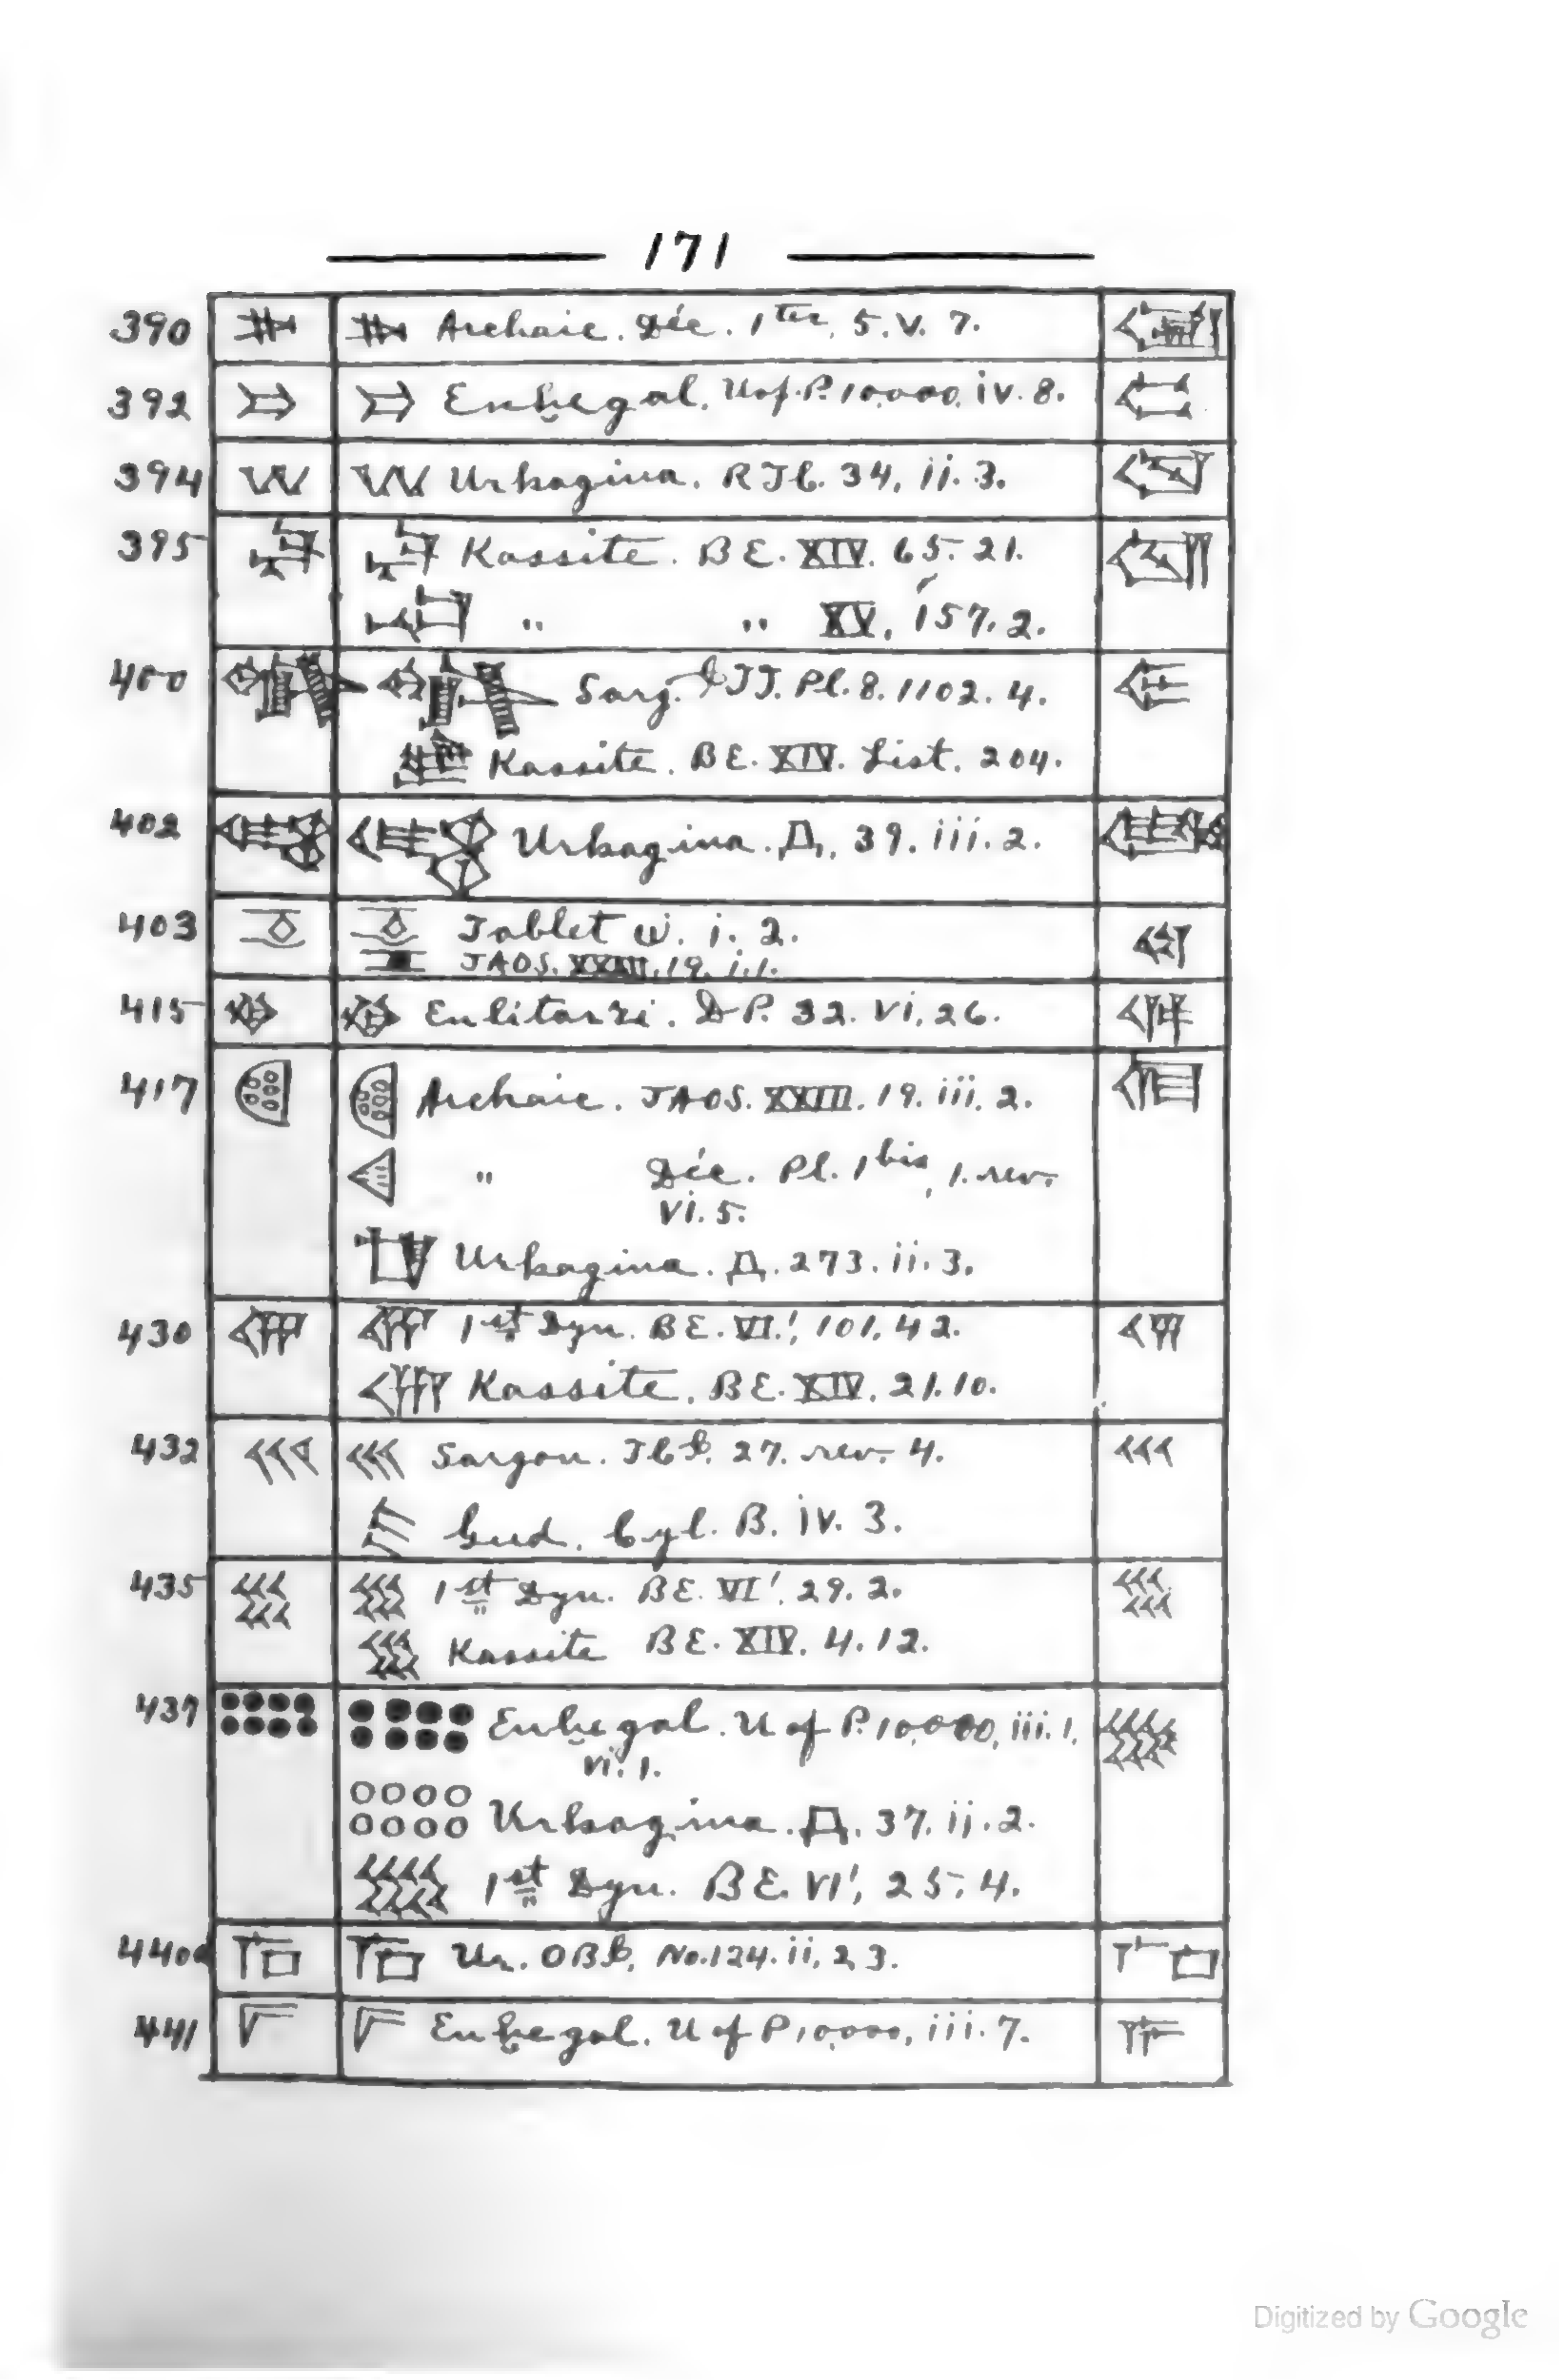 171
390 Archaic. Déc. 1ter, 5. V. 7.
392 Enḫegal. U of P. 10,000, iv. 8.
394 Urkagina. RTC. 34, ii. 3.
395 Kassite. BE. XIV. 65. 21.
" " XV, 157. 2.
400 Sarg. Pl. 8. 1102. 4.
Kassite. BE. XIV. List. 204.
402 Urkagina. Д. 39. iii. 2.
403 Tablet i. 2.
JAOS. XXIII. 19. i. 1.
415 Enlitarzi. DP. 32. VI. 26.
417 Archaic. JAOS. XXIII. 19. iii. 2.
" Déc. Pl. 1bis, 1. rev.
VI. 5.
Urkagina. Д. 273. ii. 3.
430 1st Dyn. BE. VI', 101. 42.
Kassite. BE. XIV. 21. 10.
432 Sargon. 27. rev. 4.
Gud. Cyl. B. iv. 3.
435 1st Dyn. BE. VI', 29. 2.
Kassite BE. XIV. 4. 12.
437 Enḫegal. U of P. 10,000, iii. 1,
vi. 1.
Urkagina. Д. 37. ii. 2.
1st Dyn. BE. VI', 25. 4.
440a Ur. No. 124. ii, 23.
441 Enḫegal. U of P 10,000, iii. 7.
Digitized by Google